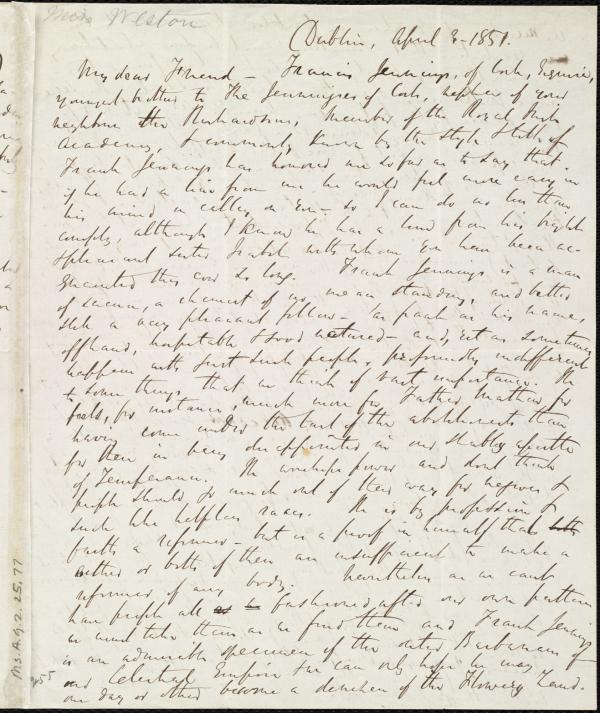 Miss Weston
Dublin, April 3 - 1851.
My dear Friend - Francis Jennings, of Cork, Esquire,
youngest brother to the Jenningses of Cork, nephew of your
neighbour the Richardsons, Member of the Royal Irish
Academy, & commonly known by the style & title of
Frank Jennings has honored me so far as to say that
if he had a line from me he would feel more easy in
his mind in calling on you - so I can do no less than
comply, although I know he has a line from his bright
& pleasant sister Isabel with whom you have been ac-
quainted this ever so long. Frank Jennings is a man
of science, a chemist of no mean standing, and better
still a very pleasant fellow - as frank as his name,
offhand, hospitable & good natured - and yet as sometimes
happens with just such people, profoundly indifferent
to some things that we think of vast importance. He
feels, for instance, much more for Father Mathew for
having come under the lash of the abolitionists than
for them in being disappointed in our shabby apostle
of Temperance. He worships power and dont think
people should go much out of their way for negroes &
such like helpless races. He is by profession &
birth a reformer - but is a proof in himself that
either or both of them are insufficient to make a
reformer of any body. Nevertheless as we cant
have people all fashioned after our own pattern
we must take them as we find them and Frank Jennings
is an admirable specimen of the outer Barbarians of
our Celestial Empire & we can only hope he may
one day or other become a denizen of the Flowery Land.
Ms.A.9.2.25.77